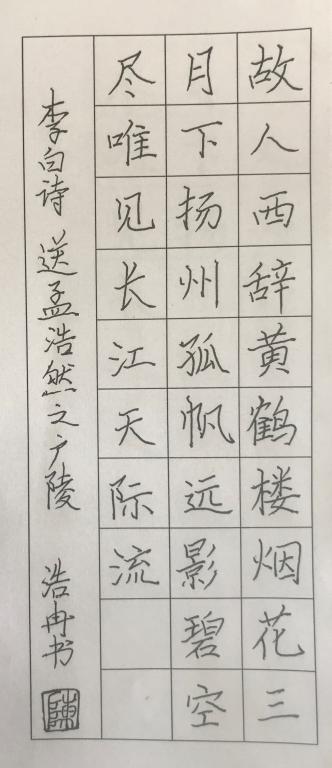 故人西辞黄鹤楼烟花三
月下扬州孤帆远影碧空
尽唯见长江天际流
李白诗 送孟浩然之广陵 浩冉书
陳